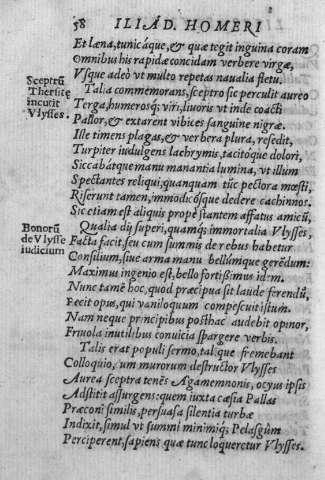 58 ILIAD. HOMERI
Et læna, tunicáque, & quæ tegit inguina coram
Omnibus his rapidæ concidam verbere virgæ,
Vsque adeò vt multo repetas naualia fletu.
Sceptrũ
Thersitẽ
incutit
Vlysses.
Talia commemorans, sceptro sic perculit aureo
Terga, humerosq; viri, liuoris vt inde coacti
Pallor, & extarent vibices sanguine nigræ.
Iste timens plagas, & verbera plura, resedit,
Turpiter indulgens lachrymis, tacitóque dolori,
Siccabátque manu manantia lumina, vt illum
Spectantes reliqui, quanquam tũc pectora mœsti,
Riserunt tamen, immodicósque dedere cachinnos.
Sic etiam est aliquis propè stantem affatus amicũ,
Bonorũ
de Vlysse
iudicium
Qualia dij superi, quamq; immortalia Vlysses,
Facta facit, seu cum summis de rebus habetur
Consilium, siue arma manu bellúmque gerẽdum:
Maximus ingenio est, bello fortissimus idem.
Nunc tamẽ hoc, quod præcipua sit laude ferendũ,
Fecit opus, qui vaniloquum compescuit istum.
Nam neque principibus posthac audebit opinor,
Friuola inutilibus conuicia spargere verbis.
Talis erat populi sermo, talique fremebant
Colloquio, cum murorum destructor Vlysses
Aurea sceptra tenẽs Agamemnonis, ocyus ipsis
Adstitit assurgens: quem iuxta cæsia Pallas
Præconi similis, persuasa silentia turbæ
Indixit, simul vt summi minimiq; Pelasgûm
Perciperent, sapiens quæ tunc loqueretur Vlysses.